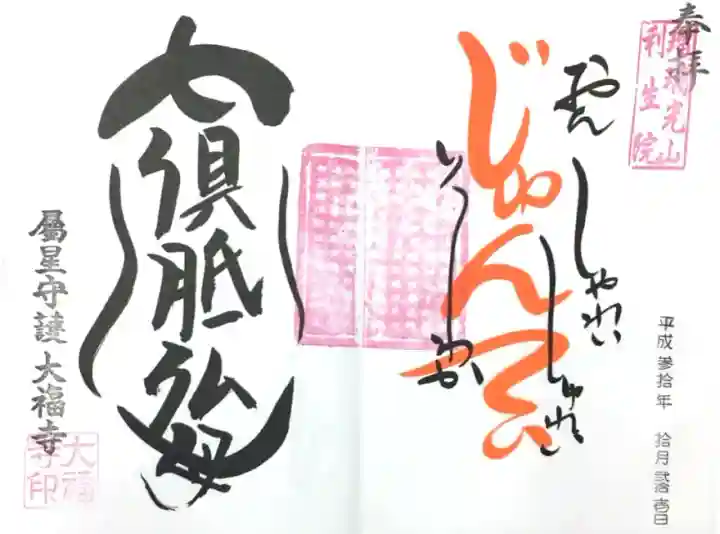 奉拝
瑠璃光山
利生院
おん
しゃれい
しゅれい
じゅんてい
そわか
平成参拾年 拾月弐拾壱日
七倶胝仏母
屬星守護 大福寺
大福
寺印